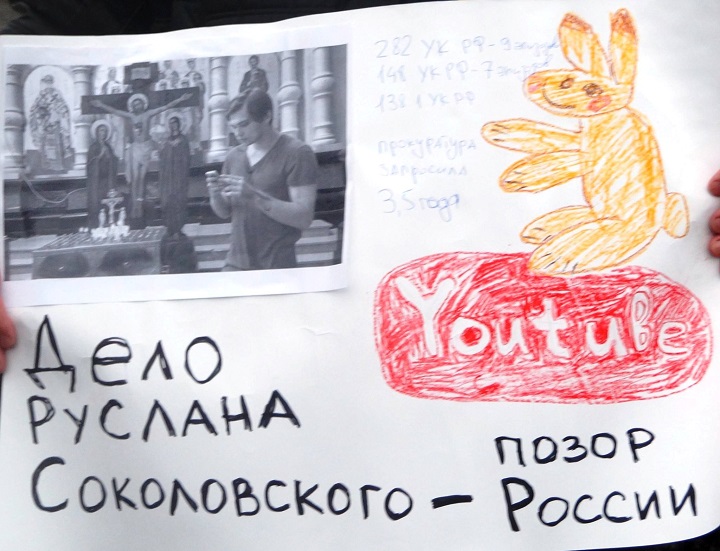 282 УК РФ - 9 эпизод
148 УК РФ - 7 эпизод
138 1 УК РФ
прокуратура
запросила
3,5 года
Youtube
Дело
Руслана
Соколовского - позор
России